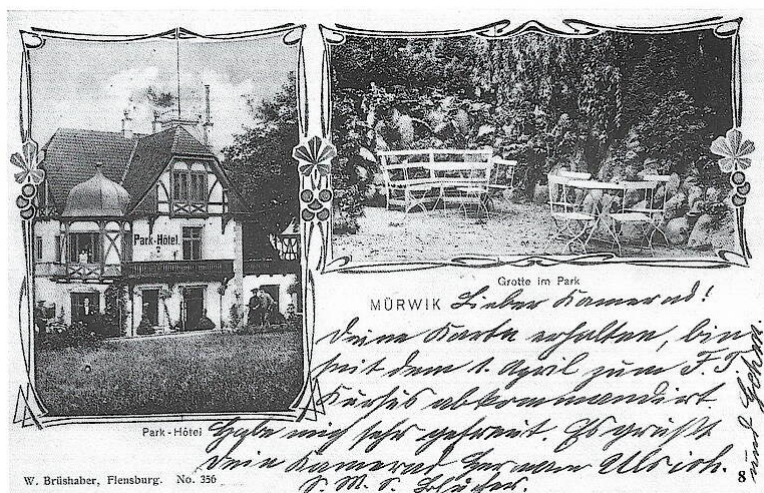 Park-Hôtel.
Grotte im Park
MÜRWIK Lieber Kamerad!
Deine Karte erhalten, bin
seit dem 1. April zum F. T.
Kursus abkommandirt.
Park-Hôtel Habe mich sehr gefreut. Es grüßt
Dein Kamerad Herman Ulrich.
S. M. S. Blücher.
und
W. Brüshaber, Flensburg. No. 356
8